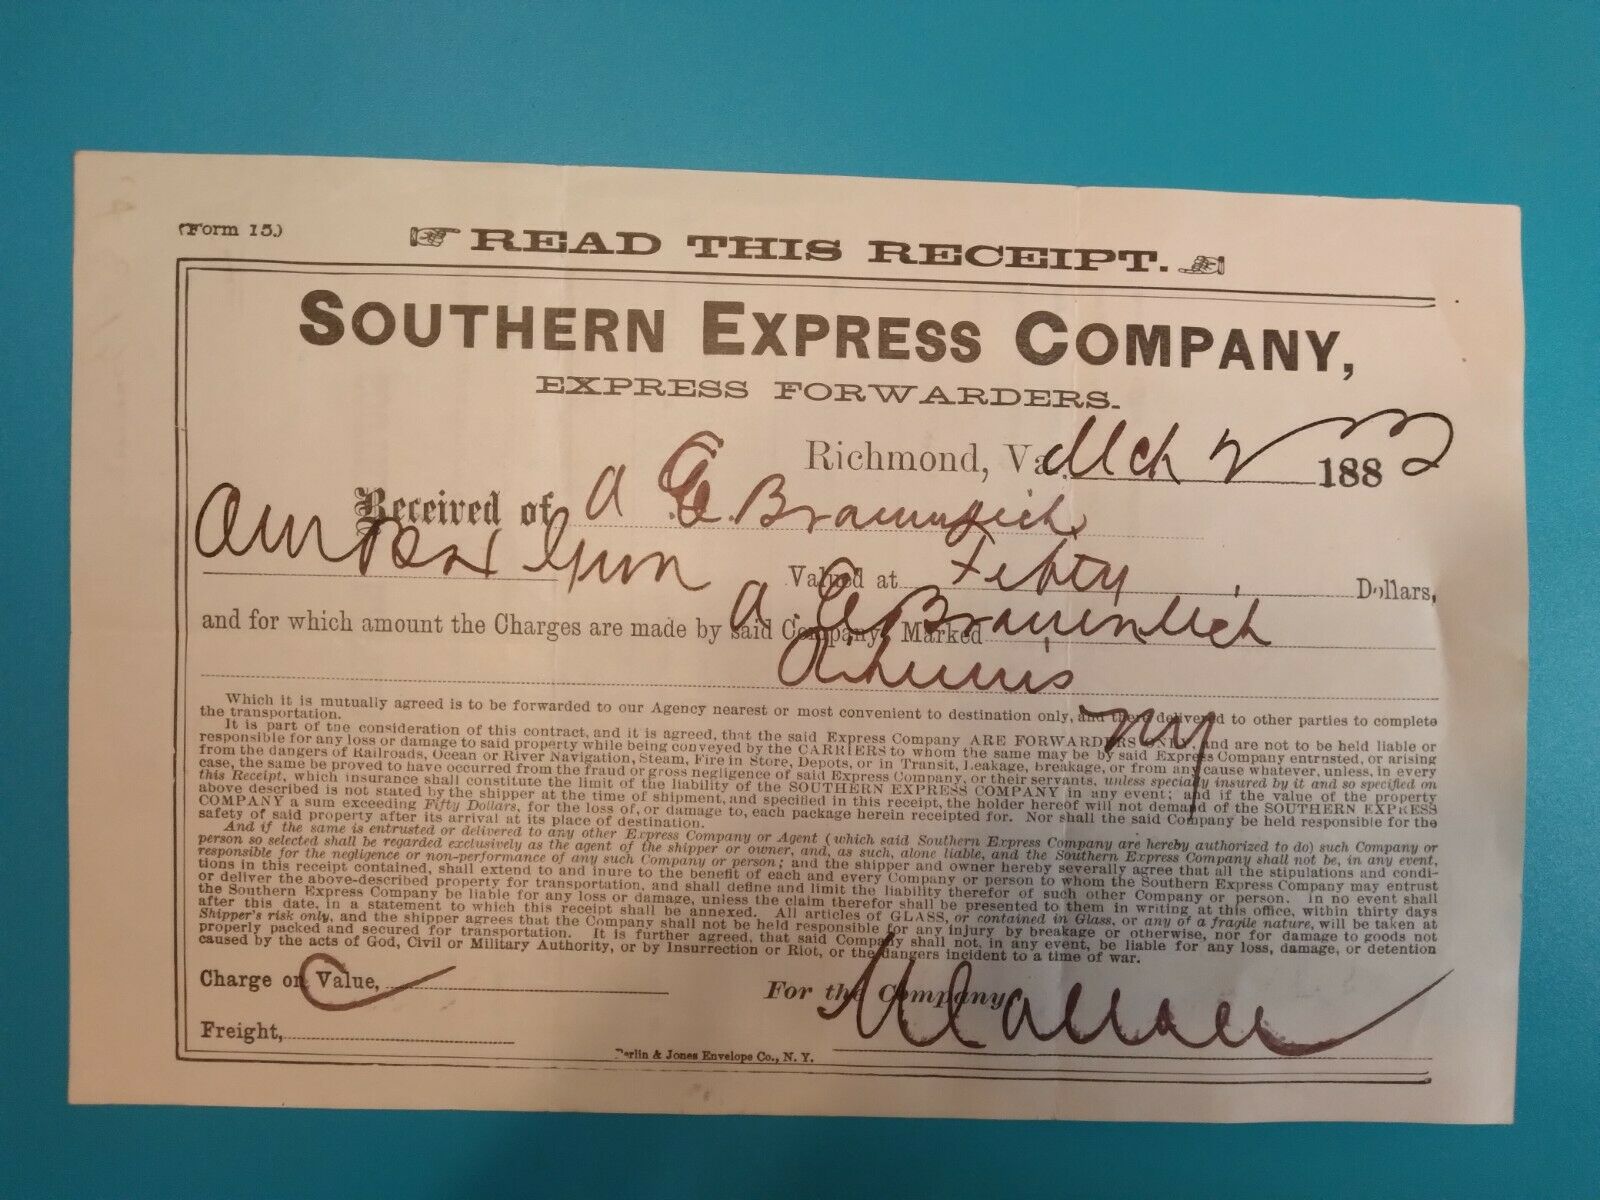 (Form 15.)
READ THIS RECEIPT.
SOUTHERN EXPRESS COMPANY,
EXPRESS FORWARDERS.
Richmond, Va. Mch 2 188
Received of A
Our Box Gun Valued at Fifty Dollars,
and for which amount the Charges are made by said Company. Marked A
NY
Which it is mutually agreed is to be forwarded to our Agency nearest or most convenient to destination only, and there delivered to other parties to complete
the transportation.
It is part of the consideration of this contract, and it is agreed, that the said Express Company ARE FORWARDERS ONLY, and are not to be held liable or
responsible for any loss or damage to said property while being conveyed by the CARRIERS to whom the same may be by said Express Company entrusted, or arising
from the dangers of Railroads, Ocean or River Navigation, Steam, Fire in Store, Depots, or in Transit, Leakage, breakage, or from any cause whatever, unless, in every
case, the same be proved to have occurred from the fraud or gross negligence of said Express Company, or their servants, unless specially insured by it and so specified on
this Receipt, which insurance shall constitute the limit of the liability of the SOUTHERN EXPRESS COMPANY in any event; and if the value of the property
above described is not stated by the shipper at the time of shipment, and specified in this receipt, the holder hereof will not demand of the SOUTHERN EXPRESS
COMPANY a sum exceeding Fifty Dollars, for the loss of, or damage to, each package herein receipted for. Nor shall the said Company be held responsible for the
safety of said property after its arrival at its place of destination.
And if the same is entrusted or delivered to any other Express Company or Agent (which said Southern Express Company are hereby authorized to do) such Company or
person so selected shall be regarded exclusively as the agent of the shipper or owner, and, as such, alone liable, and the Southern Express Company shall not be, in any event,
responsible for the negligence or non-performance of any such Company or person; and the shipper and owner hereby severally agree that all the stipulations and condi-
tions in this receipt contained, shall extend to and inure to the benefit of each and every Company or person to whom the Southern Express Company may entrust
or deliver the above-described property for transportation, and shall define and limit the liability therefor of such other Company or person. In no event shall
the Southern Express Company be liable for any loss or damage, unless the claim therefor shall be presented to them in writing at this office, within thirty days
after this date, in a statement to which this receipt shall be annexed. All articles of GLASS, or contained in Glass, or any of a fragile nature, will be taken at
Shipper's risk only, and the shipper agrees that the Company shall not be held responsible for any injury by breakage or otherwise, nor for damage to goods not
properly packed and secured for transportation. It is further agreed, that said Company shall not, in any event, be liable for any loss, damage, or detention
caused by the acts of God, Civil or Military Authority, or by Insurrection or Riot, or the dangers incident to a time of war.
Charge on Value, For the Company,
Wallace
Freight,
Berlin & Jones Envelope Co., N. Y.